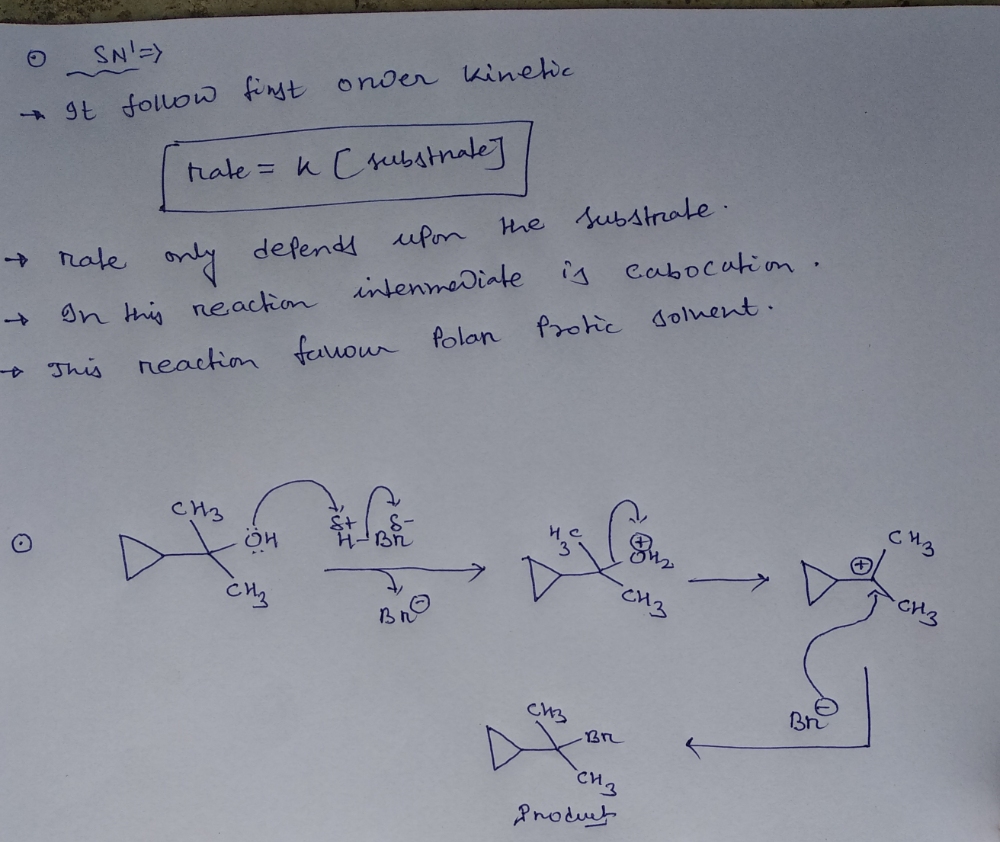 SN¹ ⇒
→ It follow first order kinetic
rate = k [substrate]
→ rate only depends upon the substrate.
→ In this reaction intermediate is cabocation.
→ This reaction favour Polar Protic solvent.
CH3 ÖH CH3 δ+ δ- H-Br Br⊖
H3C ⊕ OH2 CH3
⊕ CH3 CH3
Br⊖
CH3 Br CH3
Product